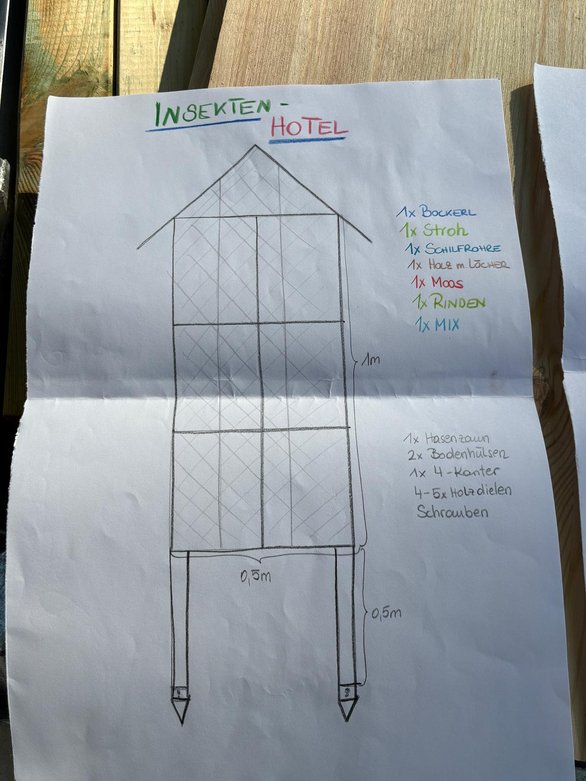 INSEKTEN-
HOTEL
1x BOCKERL
1x Stroh
1x SCHILFROHRE
1x HOLZ m. LÖCHER
1x MOOS
1x RINDEN
1x MIX
1m
1x Hasenzaun
2x Bodenhülsen
1x 4-Kanter
4-5x Holzdielen
Schrauben
0,5m
0,5m